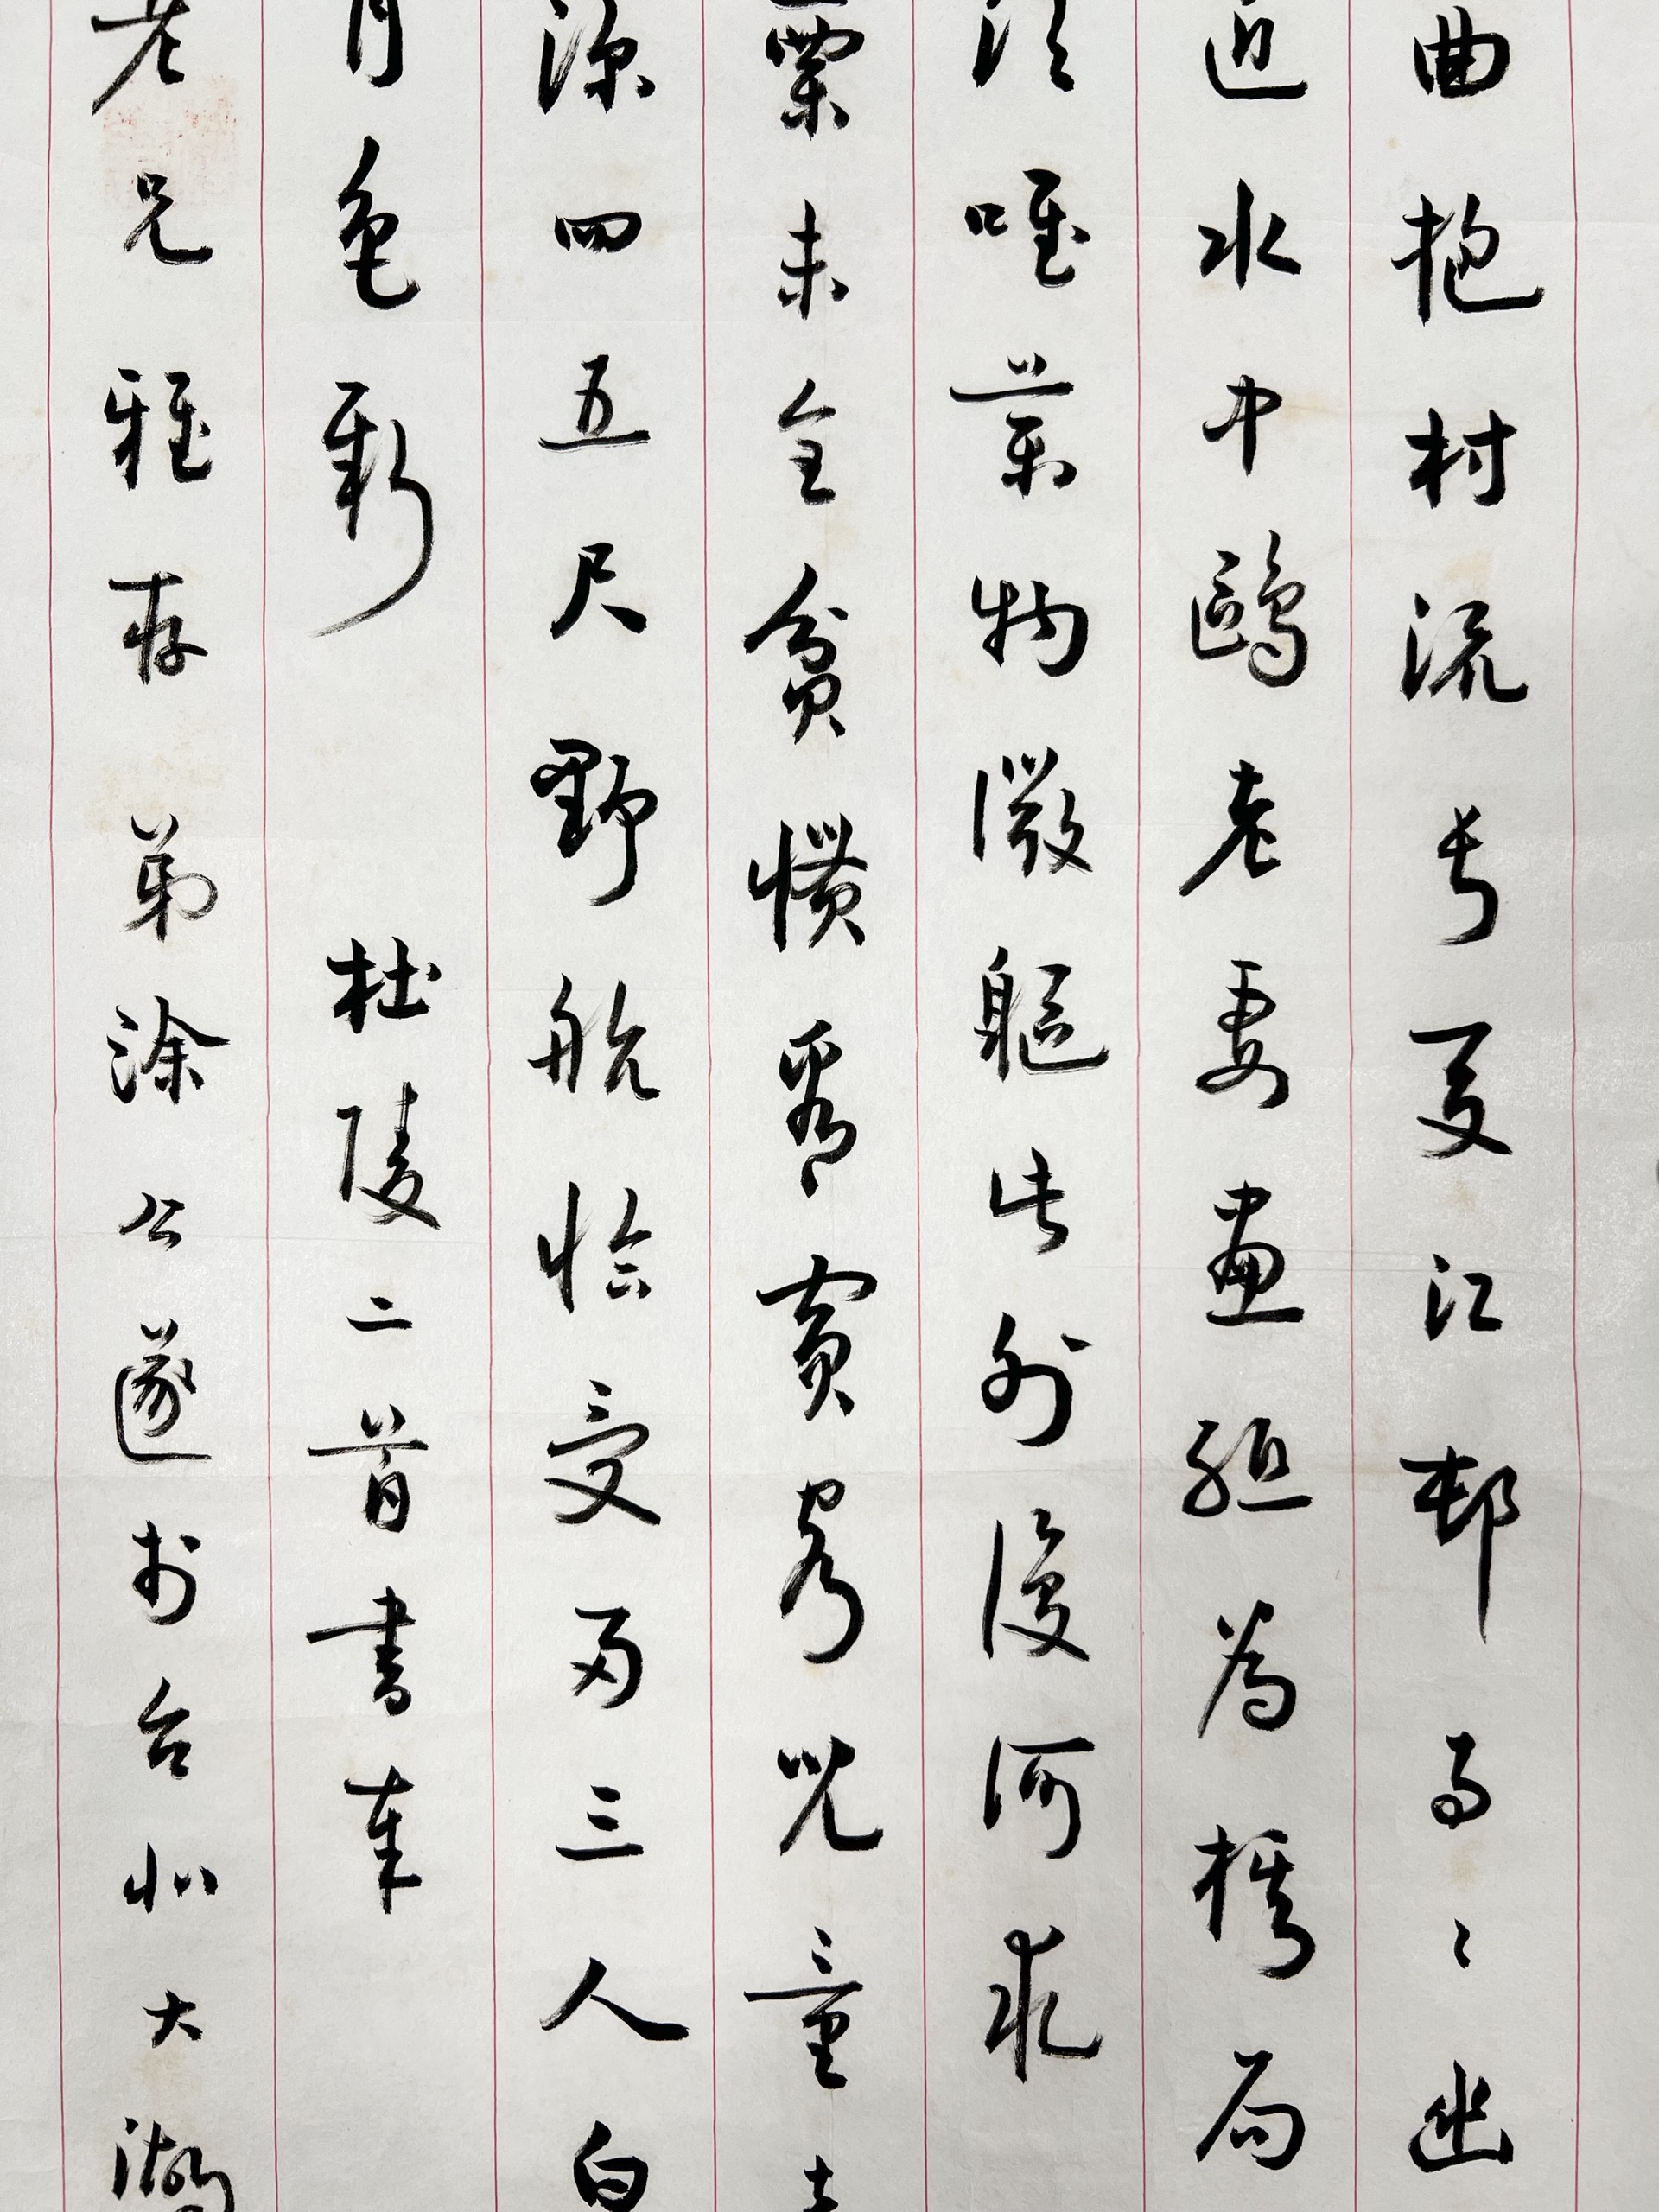 曲抱村流長夏江邨事〻幽
近水中鷗老妻畫紙為棋局
須唯藥物微軀此外復何求
栗未全貧慣看賓客兒童
深四五尺野航恰受兩三人白
月色新 杜陵二首書奉
老兄雅存 弟涂公遂於台北大湖